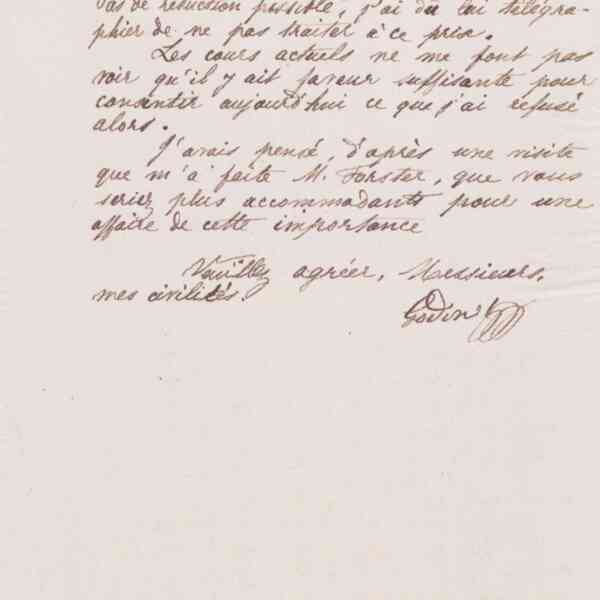 pas de réduction possible, j'ai dû lui télégra-
phier de ne pas traiter à ce prix.
Les cours actuels ne me font pas
voir qu'il y ait faveur suffisante pour
consentir aujourd'hui ce que j'ai refusé
alors.
J'avais pensé, d'après une visite
que m'a faite M. Forster, que vous
seriez plus accommodants pour une
affaire de cette importance
Veuillez agréer, Messieurs,
mes civilités.
Godin